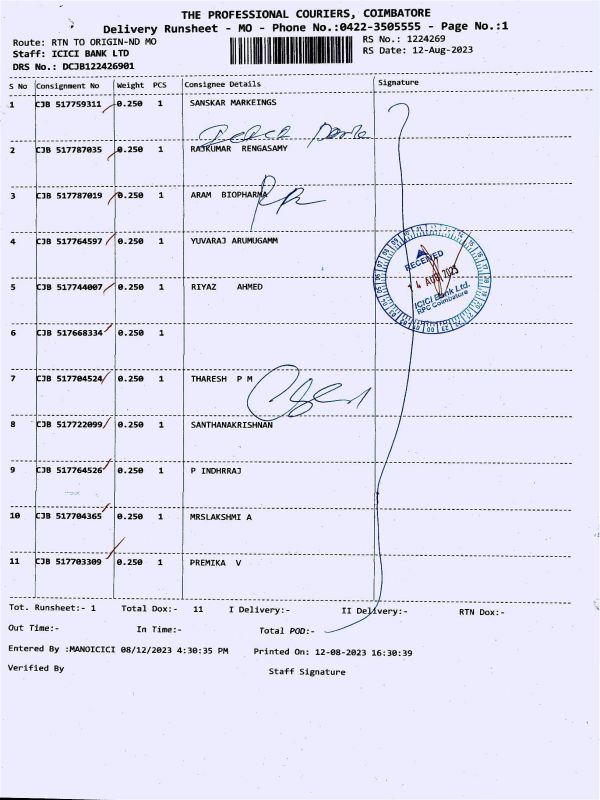 THE PROFESSIONAL COURIERS, COIMBATORE
Delivery Runsheet - MO - Phone No.:0422-3505555 - Page No.:1
Route: RTN TO ORIGIN-ND MO
RS No.: 1224269
Staff: ICICI BANK LTD
RS Date: 12-Aug-2023
DRS No.: DCJB122426901
S No Consignment No Weight PCS Consignee Details Signature
1 CJB 517759311 0.250 1 SANSKAR MARKEINGS
2 CJB 517787035 0.250 1 RAJKUMAR RENGASAMY
3 CJB 517787019 0.250 1 ARAM BIOPHARMA
4 CJB 517764597 0.250 1 YUVARAJ ARUMUGAMM
RECEIVED
14 AUG 2023
ICICI Bank Ltd.
RPC Coimbatore
5 CJB 517744007 0.250 1 RIYAZ AHMED
6 CJB 517668334 0.250 1
7 CJB 517704524 0.250 1 THARESH P M
8 CJB 517722099 0.250 1 SANTHANAKRISHNAN
9 CJB 517764526 0.250 1 P INDHRRAJ
10 CJB 517704365 0.250 1 MRSLAKSHMI A
11 CJB 517703309 0.250 1 PREMIKA V
Tot. Runsheet:- 1 Total Dox:- 11 I Delivery:- II Delivery:- RTN Dox:-
Out Time:- In Time:- Total POD:-
Entered By :MANOICICI 08/12/2023 4:30:35 PM Printed On: 12-08-2023 16:30:39
Verified By Staff Signature